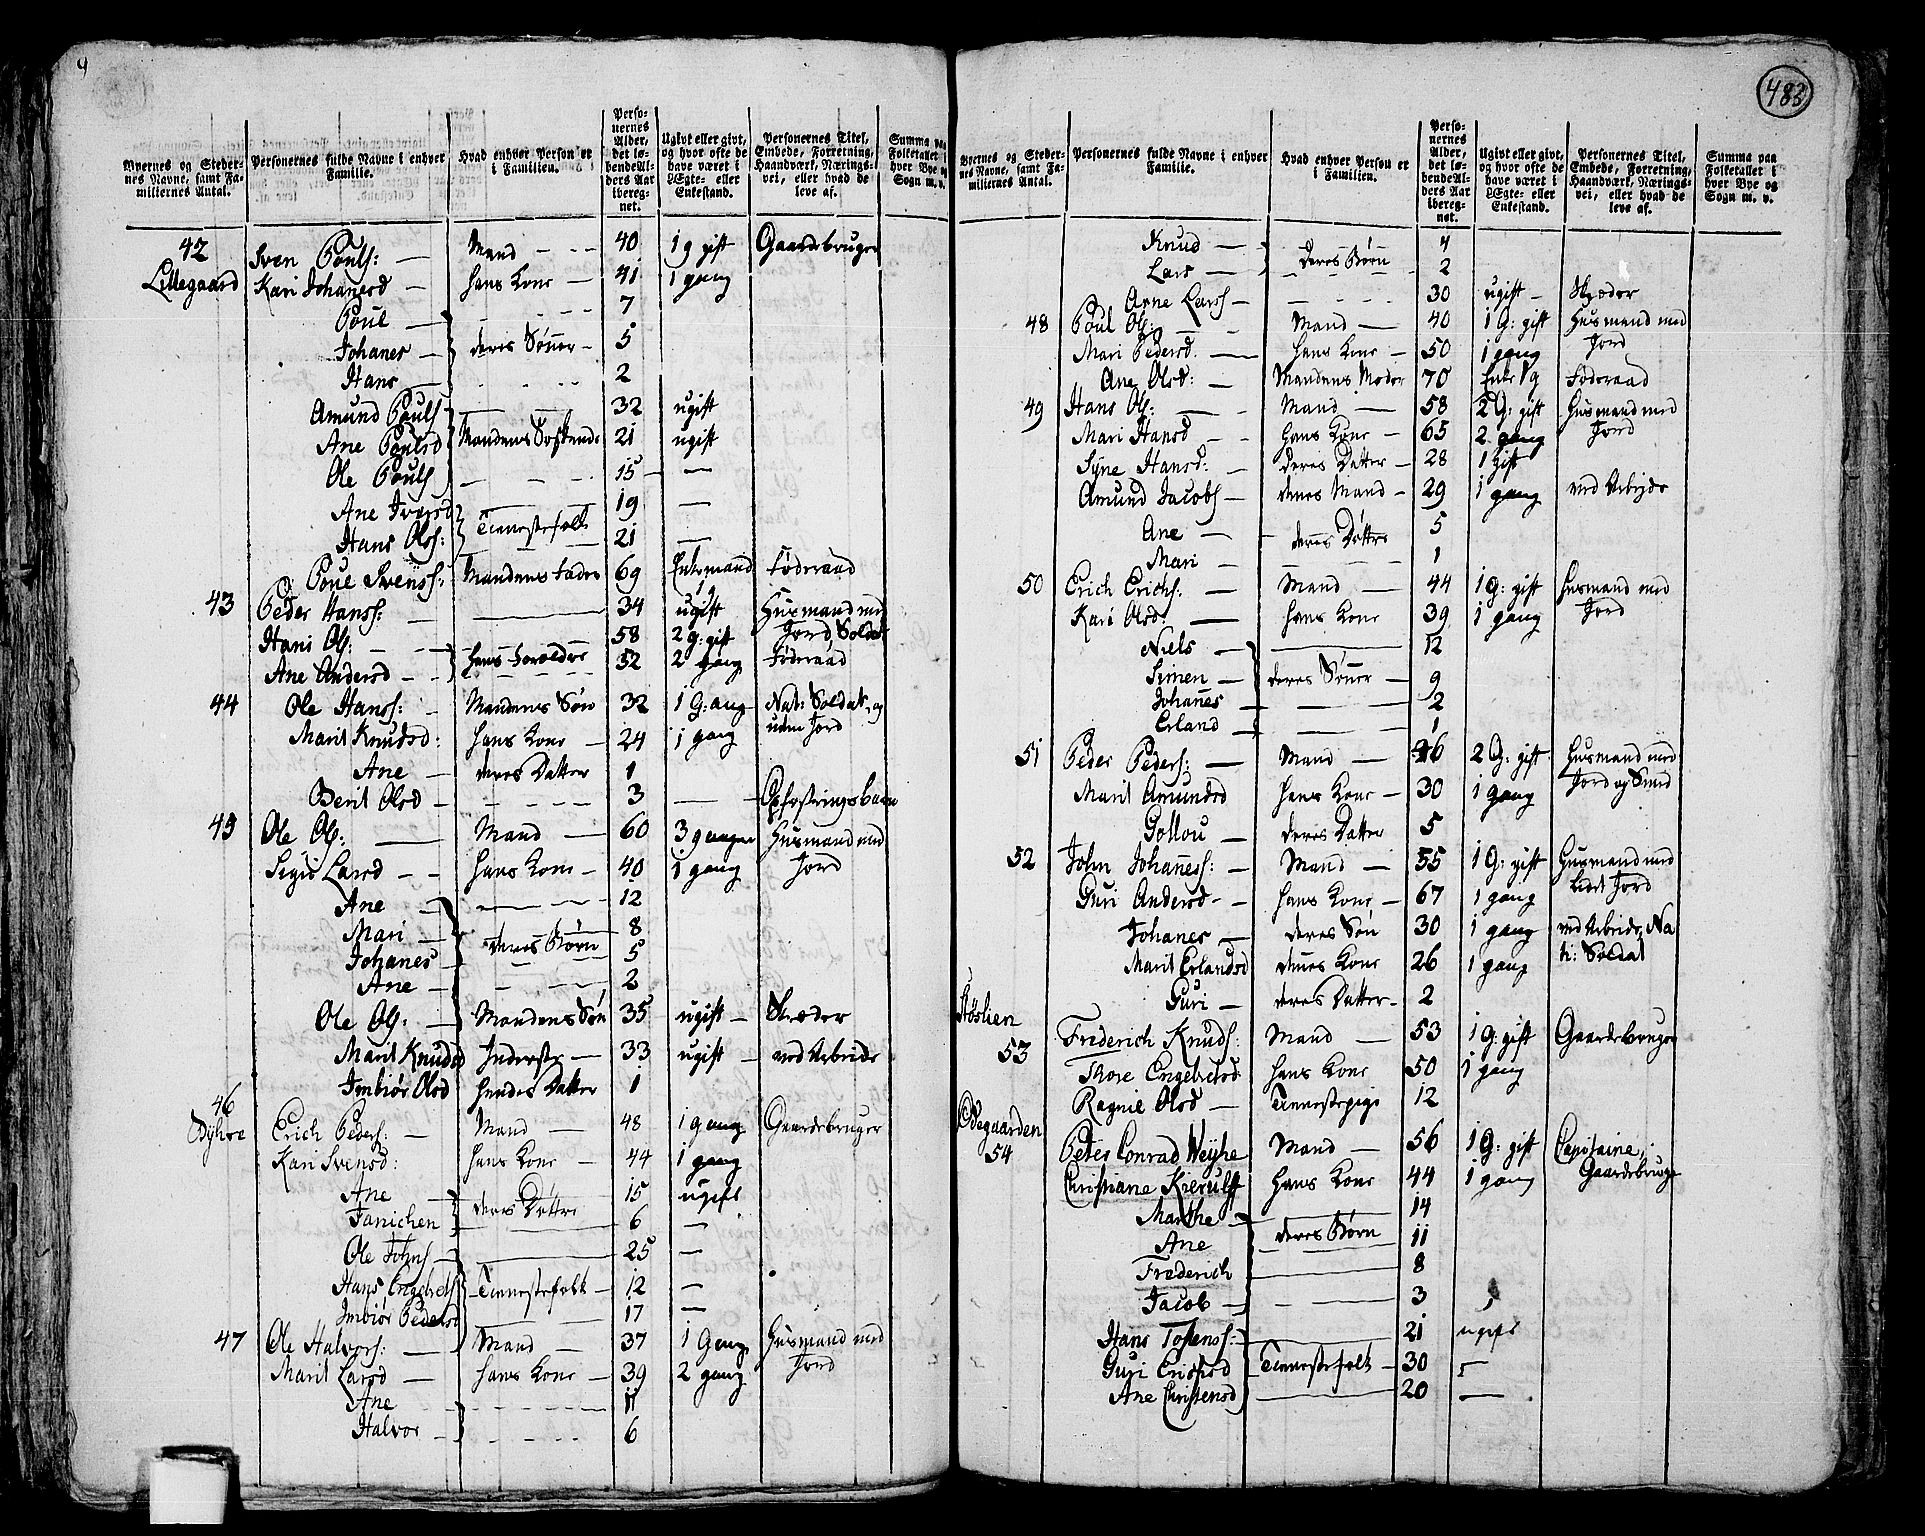 483
Byernes og Stedernes Navne, samt Familiernes Antal. | Personernes fulde Navne i enhver Familie. | Hvad enhver Person er i Familien. | Personernes Alder, det løbende Alders Aar iberegnet. | Ugivt eller givt, og hvor ofte de have været i Ægte- eller Enkestand. | Personernes Titel, Embede, Forretning, Haandværk, Næringsvei, eller hvad de leve af. | Summa paa Folketallet i hver Bye og Sogn m. v.
42 Sven Pouls: — Mand — 40 1 g gift Gaardebruger
Lillegaard Kari Johanesd — hans Kone — 41 1 gang
Poul — 7
Johanes — deres Sönner — 5
Hans — 2
Amund Pouls 32 ugift
Ane Poulsd Mandens Söskende 21 ugift
Ole Pouls 15 —
Ane Iversd 19 —
Hans Ols: Tienestefolk 21 —
Poul Svens: Mandens Fader 69 Enkemand 1 g Föderaad
43 Peder Hanss: — 34 ugift Husmand med Jord Soldat
Hans Ols: — 58 2 g: gift
Ane Andersd — hans Forældre 52 2 gang Föderaad
44 Ole Hanss: — Mandens Sön 32 1 G:ang Nat: Soldat og uden Jord
Marit Knudsd: hans Kone — 24 1 gang
Ane — deres Datter 1
Berit Olsd — 3 — Opfostringsbarn
45 Ole Ols: — Mand — 60 3 ganger Husmand med Jord
Sigri Larsd — hans Kone — 40 1 gang
Ane — 12
Mari — 8
Johanes — deres Börn 5
Ane — 2
Ole Ols: — Mandens Sön 35 ugift — Skræder
Marit Knudsd Inderste — 33 ugift — ved Arbeide
Imbiör Olsd hendes Datter 1
46 Erich Peders: — Mand — 48 1 gang Gaardebruger
Kari Svensd: hans Kone — 44 1 gang
Ane — deres Döttre 15 ugift
Fanichen 6 —
Ole Johns — 25 —
Hans Engebrets Tienestefolk — 12 —
Imbiör Pedersd 17 —
47 Ole Halvors: — Mand — 37 1 Gang Husmand med Jord
Marit Larsd — hans Kone — 39 2 gang
Ane — 11
Halvor — 6
Byernes og Stedernes Navne, samt Familiernes Antal. | Personernes fulde Navne i enhver Familie. | Hvad enhver Person er i Familien. | Personernes Alder, det løbende Alders Aar iberegnet. | Ugivt eller givt, og hvor ofte de have været i Ægte- eller Enkestand. | Personernes Titel, Embede, Forretning, Haandværk, Næringsvei, eller hvad de leve af. | Summa paa Folketallet i hver Bye og Sogn m. v.
Knud — deres Börn 4
Lars — 2
Arne Larss — 30 ugift — Skræder
48 Poul Ols: — Mand — 40 1 G: gift Husmand med Jord
Mari Pedersd. — hans Kone — 50 1 gang
Ane Olsd: — Mandens Moder 70 Enke 1 g Föderaad
49 Hans Ols: — Mand — 58 2 G: gift Husmand med Jord
Mari Hansd — hans Kone — 65 2 gang
Syne Hansd: — deres Datter — 28 1 gift
Amund Jacobs — denes Mand — 29 1 gang ved Arbejde
Ane — deres Döttre 5
Mari — 1
50 Erich Erichs: — Mand — 44 1 G: gift Husmand med Jord
Kari Olsd: — hans Kone 39 1 gang
Niels — 12
Simen — deres Sönner — 9
Johannes — 2
Erland — 1
51 Peder Peders: — Mand — 46 2 G: gift Husmand med Jord og Smed
Marit Amundsd hans Kone — 30 1 gang
Gollou — deres Datter 5
52 John Johaness: — Mand — 55 1 G: gift Husmand med lidet Jord
Guri Andersd — hans Kone — 67 1 gang
Johanes — deres Sön 30 1 gang ved Arbeide, Nati: Soldat
Marit Erlandsd denes Kone 26 1 gang
Guri — deres Datter — 2
53 Frederich Knuds: Mand — 53 1 G: gift Gaardebruger
Thore Engebretsd hans Kone 50 1 gang
Ragnil Olsd — Tienestepige 12
Ödegaarden
54 Peter Conrad Weyhe Mand — 56 1 G: gift Capitaine, Gaardebruger
Christiane Kierulff hans Kone 44 1 gang
Marthe — 14
Ane deres Börn 11
Frederich — 8
Jacob — 3
Hans Tostenss: 21 ugift
Guri Erichsd Tienestefolk — 30 —
Ane Christensd — 20 —